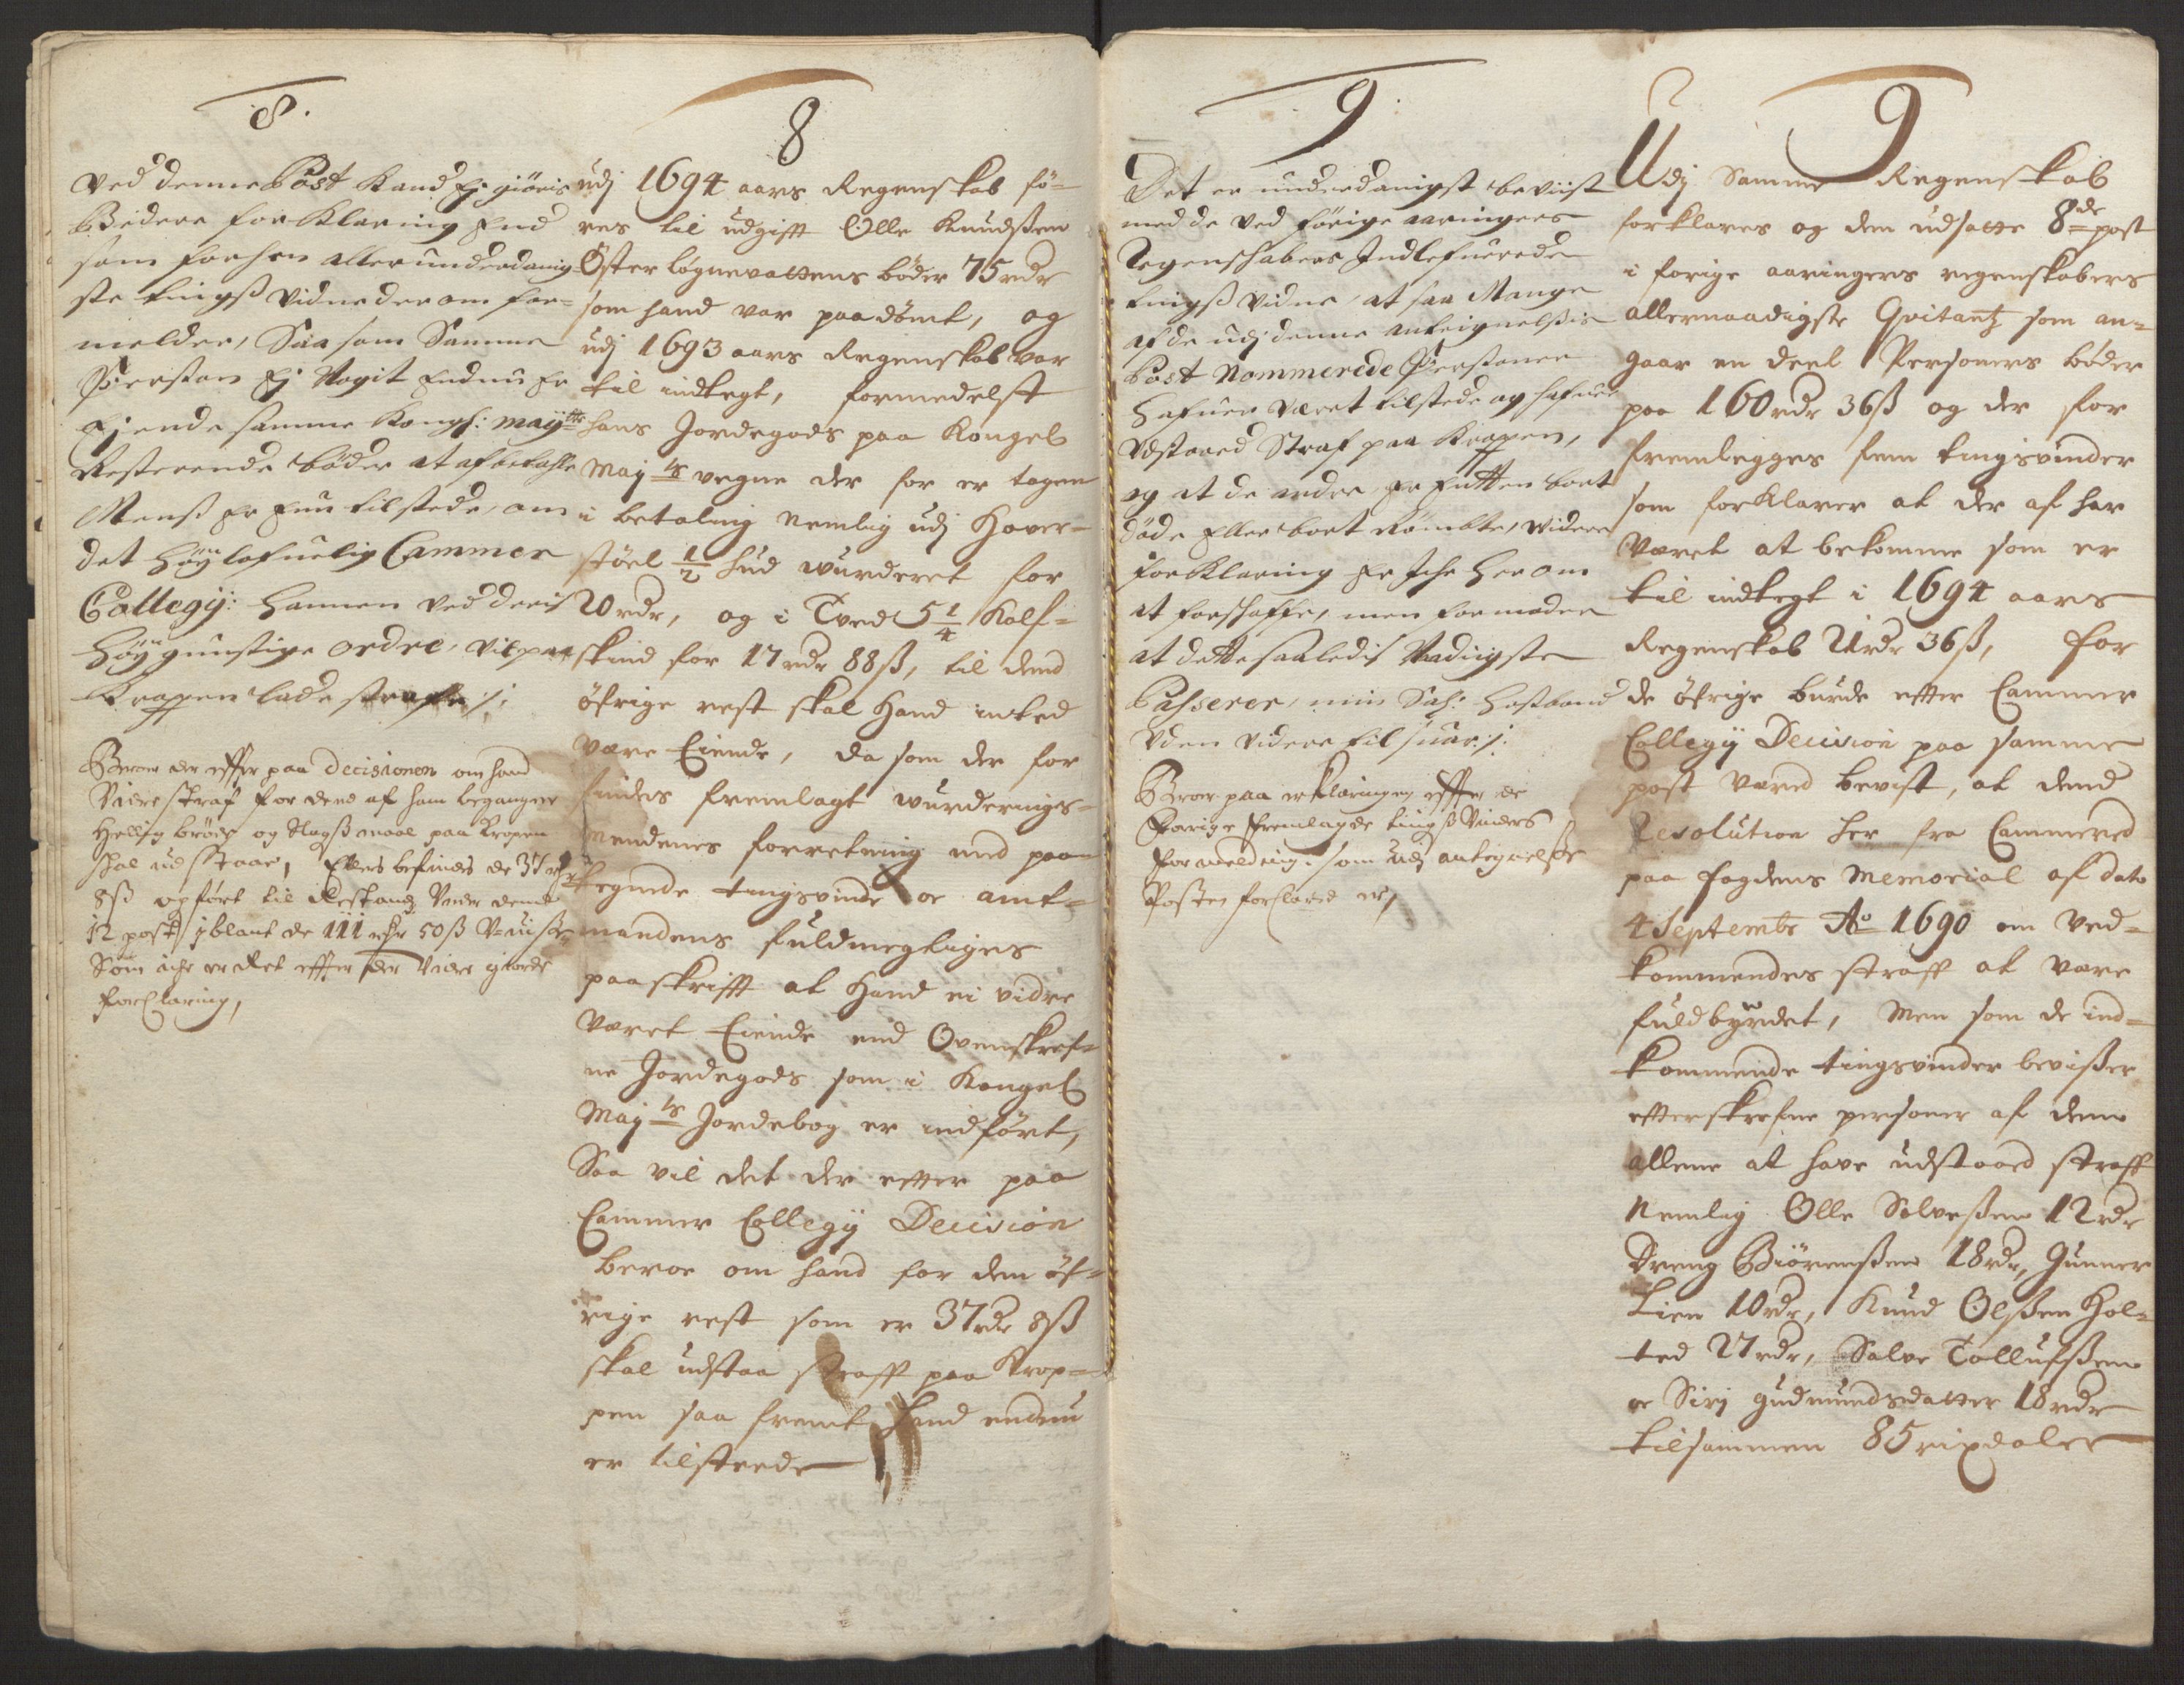 8.
Ved denne Post Kand Ej giöris
Videre forKlaring End
som forhen allerunderdanig-
ste tingß Vidne derom for-
melder, Saa som Samme
Perßon Ej Nogit Endnu Er
Ejende samme Kongl: mayttz
Resterende böder at afbetahle
Menß Er hun tilstede, om
det Höylofuelig Cammer
Collegij: Hannem Ved deris
Höygunstige ordre, Vil paa
Kroppen lade straffe ./.
Beroer der effter paa Decisionen om hand
Videre straf for dend af ham begangne
Hellig bröde og Slagß maal paa Kropen
skal udstaae, Ellers befindes de 37 rdr
8ß opfört til Restandz Under dend
12 post, iblant de 111 rdr 50ß
Som iche er det effter der Videre giorde
forClaring,
8
udj 1694 aars Regenskab fö-
res til udgifft Olle Knudßen
Österlögnevattens böder 75 rdr
som hand var paadömt, og
udj 1693 aars Regenskab var
til indtegt, formedelst
hans Jordegods paa Kongel
May ts vegne der for er tagen
i betaling Nemlig udj Hover-
stöel 1/2 hud wurderet for
20 rdr, og i Tved 5 1/4 Kalf-
skind for 17 rdr 88ß, til dend
öfrige rest skal Hand inted
være Eiende, da som der for
findes fremlagt wurderings-
Mendenes forretning med paa-
tegnede tingsvinde oc amt-
mandens fuldmegtiges
paaskrifft at Hand ei vidre
Været Eiende end Ovenskref-
ne Jordegods som i Kongel
May ts Jordebog er indfört,
Saa vil det der efter paa
Cammer Collegij Decision
beroe om hand for dem öf-
rige rest som er 37 rdr 8ß
skal udstaa straff paa Krop-
pen saa fremt hand endnu
er tilstæde
9
Det er underdanigst beviist
med de Ved forige aaringers
Regenschabers Indlefuerede
tingß Vidne, at saa Mange
af de udj denne anteignelßis
Post Nommerede Perßoner
Hafuer Været tilstede og hafuer
Udstaaed Straf paa Kroppen,
og at de andre Er Entten bort
döde Eller bort Römbte, widere
forKlaring Er Iche Her om
at forschaffe, men formoder
at dette saaledis Naadigste
Passerer, min Sal: Hosbond
Uden Videre tilsuar ./.
Beroer paa erklæringen effter de
Forrige fremlagde tingß Vinders
formelding. som udj antegnelße
Posten forClared er,
9
Udj Samme Regenskab
forklares og den udsatte 8de post
i forige aaringers regenskabers
allernaadigste Qvitantz som an-
gaar en deel Personers böder
paa 160 rdr 36ß og der for
fremlegges fem tingsvinder
som forklarer at der af har
Været at bekomme som er
til indtegt i 1694 aars
Regenskab 21 rdr 36ß, for
de öfrige burde efter Cammer
Collegij Decision paa samme
post Været bevist, at dend
Resolution her fra Cammered
paa fogdens Memorial af dato
4 Septembr Ao 1690 om Ved-
kommendes straff at være
fuldbyrdet, Men som de ind-
kommende tingsvinder bevißer
efterskrefne personer af dem
allene at have udstaaed straff
Nemlig Olle Salveßen 12 rdr
Dreng Biörenßen 18 rdr, Gunner
Lien 10 rdr, Knud Olßen Hol-
ted 27 rdr, Salve Tollufßen
oc Sirj Gudmundsdatter 18 rdr
tilsammen 85 rixdaler